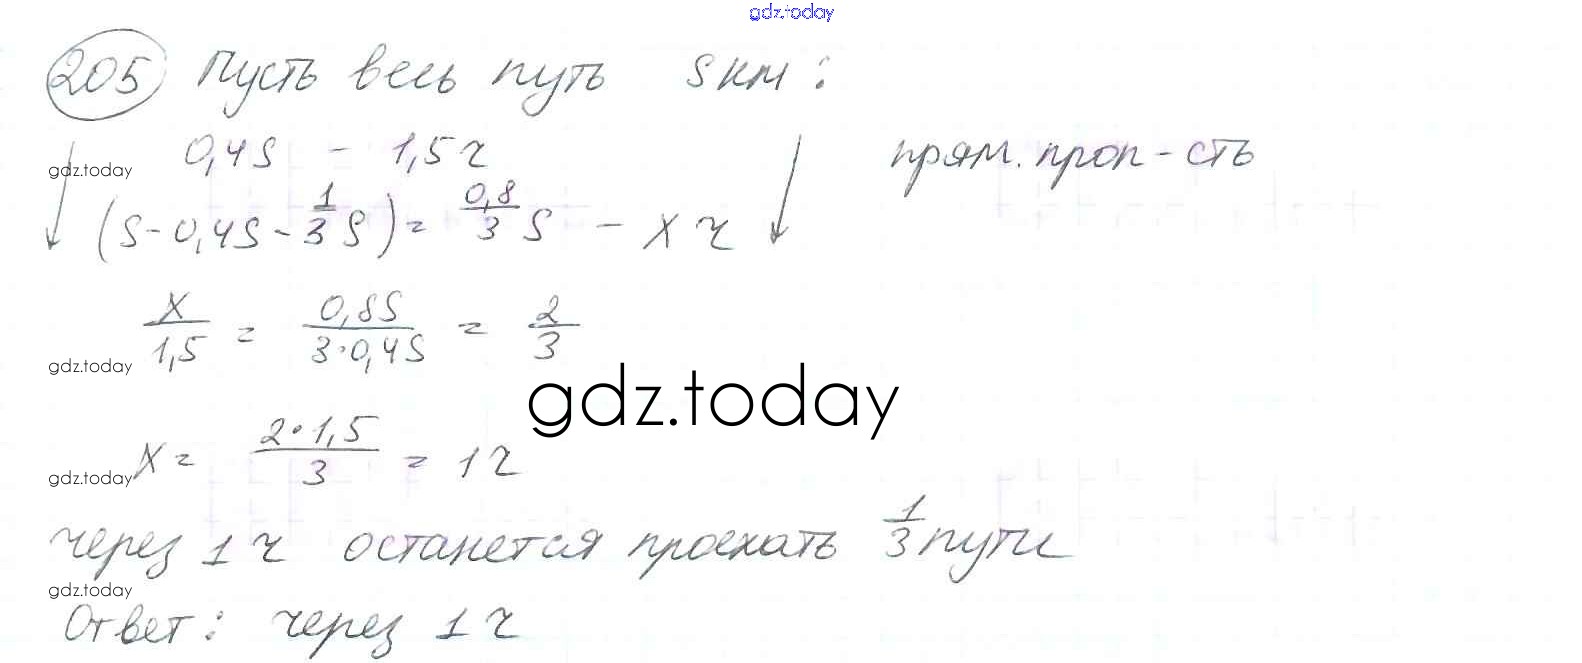 gdz.today
205 Пусть весь путь S км:
0,4S - 1,5 ч прям. проп-сть
gdz.today
(S - 0,4S - 1/3 S) = 0,8/3 S - x ч
x/1,5 = 0,8S/3·0,4S = 2/3
gdz.today
gdz.today
x = 2·1,5/3 = 1 ч
gdz.today
через 1 ч останется проехать 1/3 пути
gdz.today
Ответ: через 1 ч